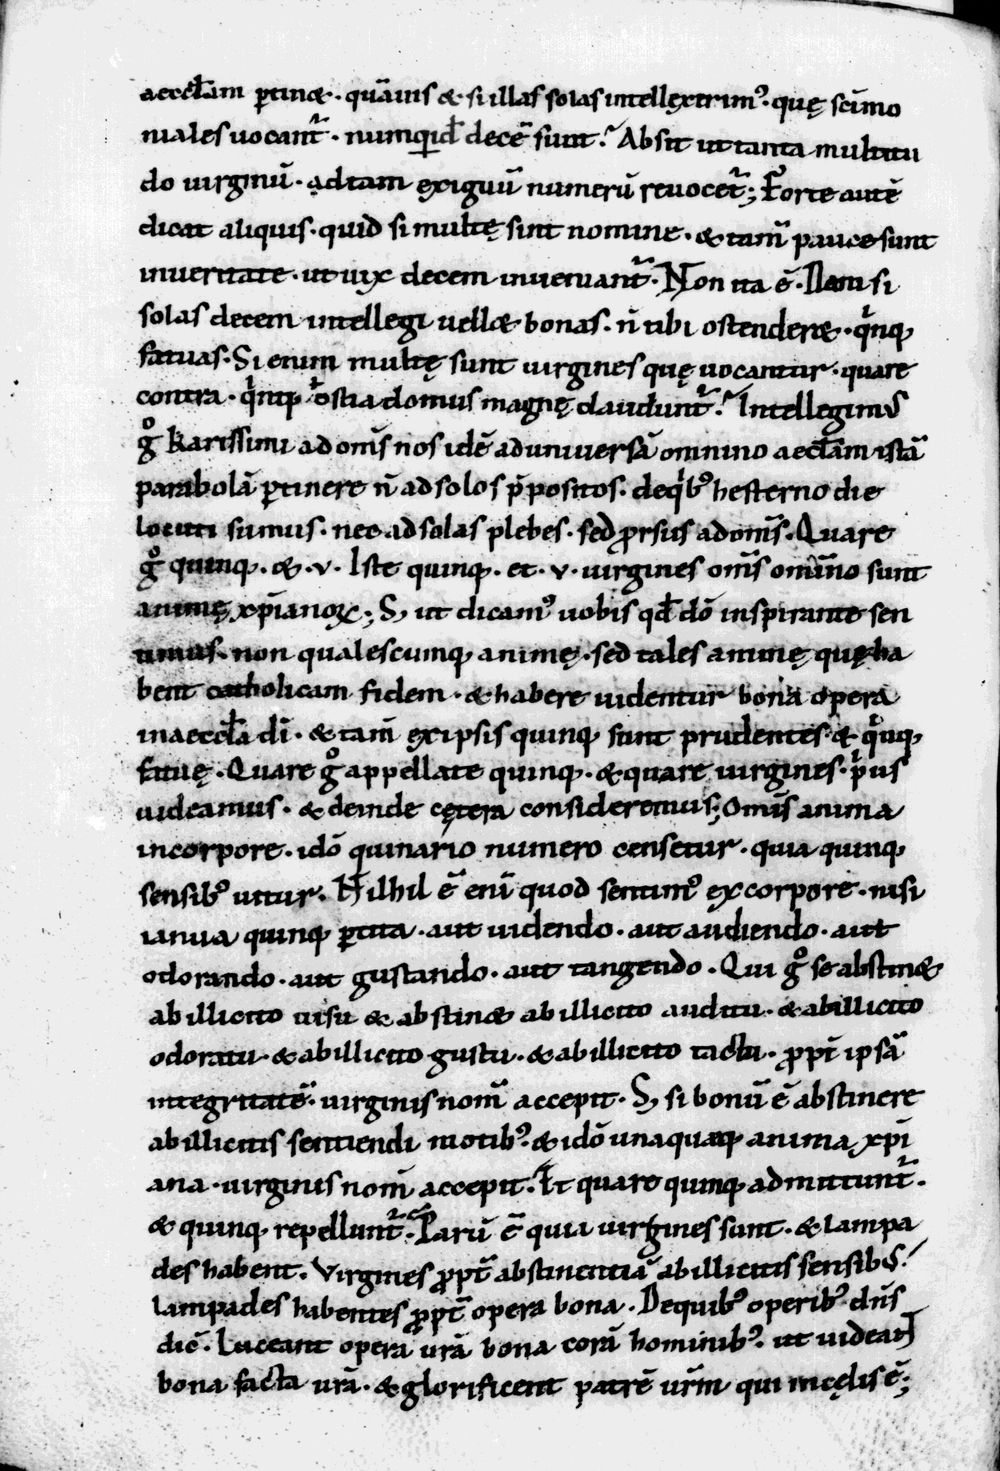 aeccłam ꝑtinæ · quāuis & si illas solas intellęxerimꝰ · quę scīmo
niales uocant᷑ · numquid decē sunt? Absit ut tanta multitu
do uirginū · ad tam exiguū numerū reuocet᷑; Forte autē
dicat aliquis · quid si multę sint nomine · & tam̄ paucę sunt
in ueritate · ut uix decem inueniant᷑ · Non ita ē · Nam si
solas decem intellegi uellæ bonas · n̄ tibi ostenderæ · qͥnq;
fatuas · Si enim multę sunt uirgines quę uocantur · quare
contra · qͥnq; ostia domus magnę claudunt᷑? Intellegimꝰ
gͦ karissimi ad om̄s nos idē ad uniuersā omnino aecclam istā
parabolā ꝑtinere n̄ ad solos p̄positos · de qͥbꝰ hesterno die
locuti sumus · nec ad solas plebes · sed ꝓrsus ad om̄s · Quare
gͦ quinq; · & · v · Iste quinq; · et · v · uirgines om̄s omīno sunt
animę xp̄ianoꝝ; S; ut dicamꝰ uobis qđ dō inspirante sen
timus · non qualescumq; animę · sed tales animę quę ha
bent catholicam fidem · & habere uidentur bona opera
in aeccła dī · & tam̄ ex ipsis quinq; sunt prudentes & qͥnq;
fatuę · Quare gͦ appellate quinq; · & quare uirgines · p̄us
uideamus · & deinde cętera consideremus; Om̄is anima
in corpore · idō quinario numero censetur · quia quinq;
sensibꝰ utitur · Nihil ē enī quod sentimꝰ ex corpore · nisi
ianua quinq; ꝑtita · aut uidendo · aut audiendo · aut
odorando · aut gustando · aut tangendo · Qui gͦ se abstinæ
ab illicito uisu & abstinæ ab illicito auditu · & ab illicito
odoratu · & ab illicito gustu · & ab illicito tactu · ꝓpt̄ ipsā
integritatē · uirginis nom̄ accepit · S; si bonū ē abstinere
ab illicitis sentiendi motibꝰ · & idō unaquaq; anima xp̄i
ana · uirginis nom̄ accepit · Et quare quinq; admittunt᷑ ·
& quinq; repellunt᷑ · Parū ē quia uirgines sunt · & lampa
des habent · Virgines ꝓpt̄ abstinentiā ab illicitis sensibꝰ ·
lampades habentes ꝓpt̄ opera bona · De quibꝰ operibꝰ dn̄s
dič · Luceant opera ur̄a bona corā hominibꝰ · ut uideant
bona facta ur̄a · & glorificent patrē ur̄m qui in cęlis ē;